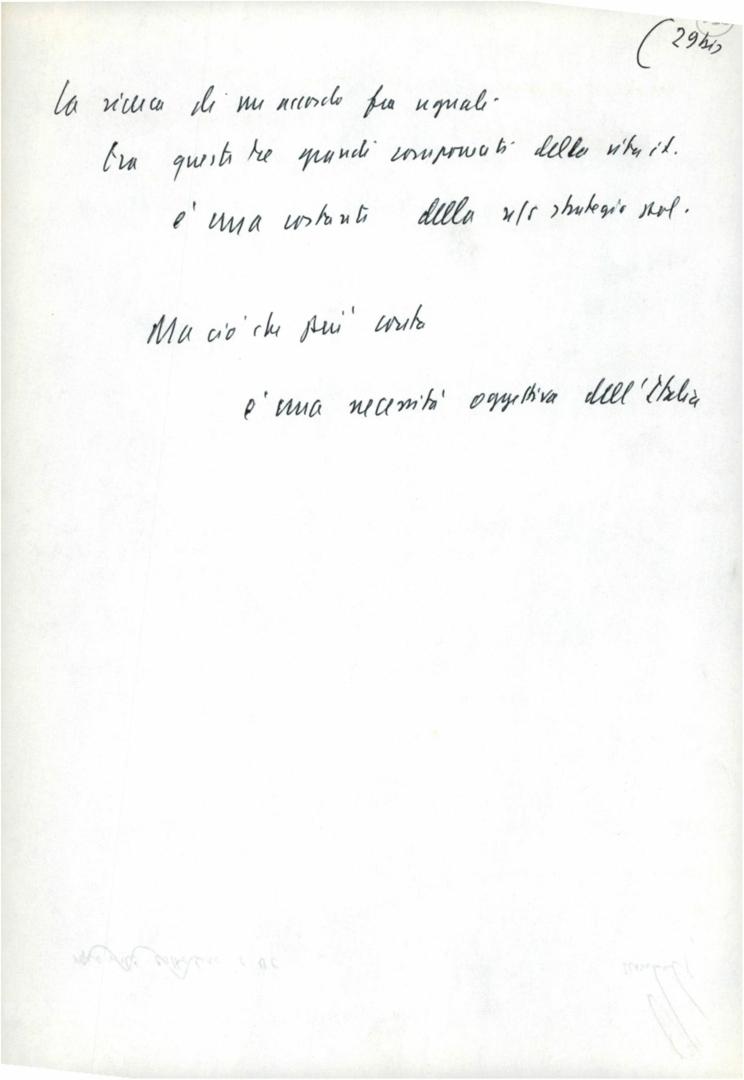 (29bis
La ricerca di un accordo fra uguali
tra questi tre grandi componenti della vita it.
è una costante della n/s strategia
Ma ciò che più conta
è una necessità oggettiva dell'Italia